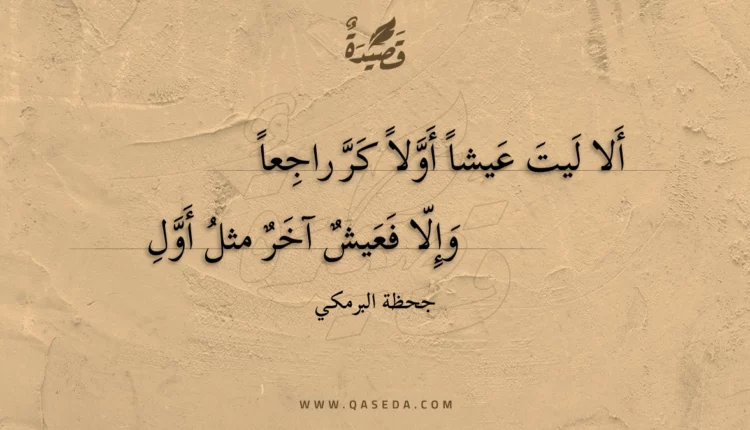 قَصِيدَةٌ
أَلا لَيتَ عَيشاً أَوَّلاً كَرَّ راجِعاً
وَإِلّا فَعَيشٌ آخَرٌ مثلُ أَوَّلِ
جحظة البرمكي
WWW.QASEDA.COM